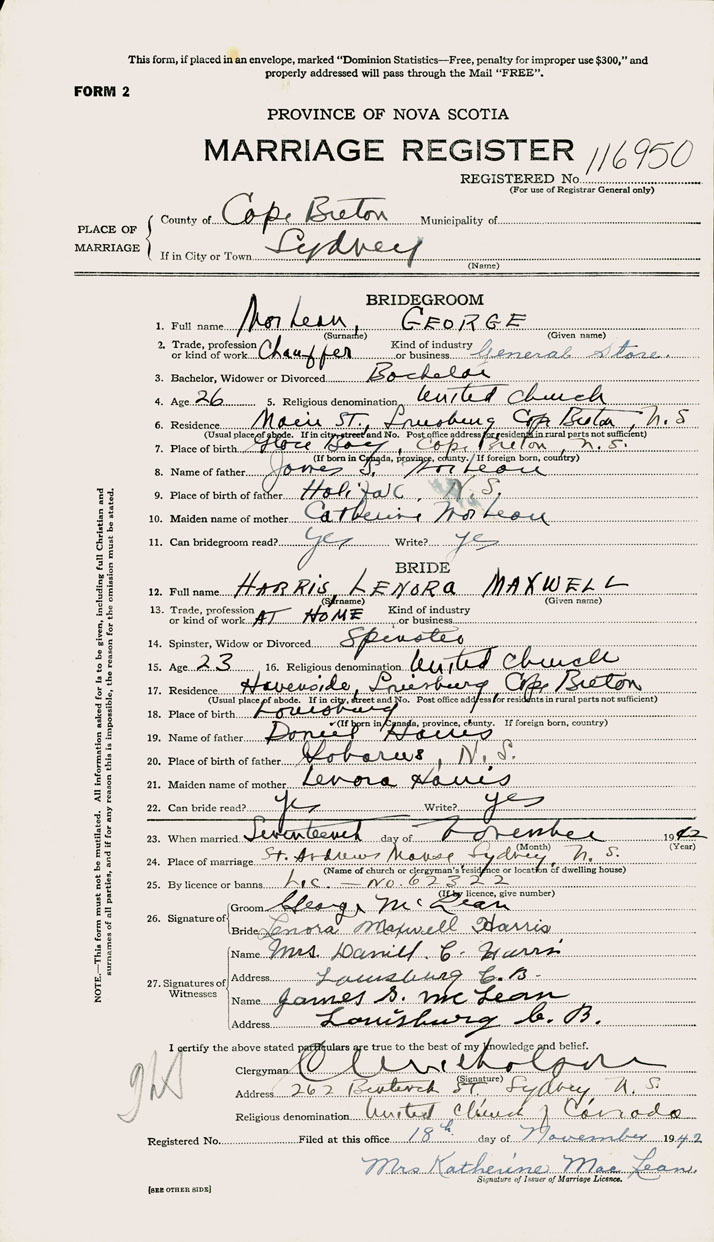 This form, if placed in an envelope, marked "Dominion Statistics—Free, penalty for improper use $300," and
properly addressed will pass through the Mail "FREE".
FORM 2
PROVINCE OF NOVA SCOTIA
MARRIAGE REGISTER 116950
REGISTERED No.
(For use of Registrar General only)
PLACE OF MARRIAGE
County of Cape Breton Municipality of
If in City or Town Sydney
(Name)
BRIDEGROOM
1. Full name MacLean, GEORGE
(Surname) (Given name)
2. Trade, profession or kind of work Chauffer Kind of industry or business General Store.
3. Bachelor, Widower or Divorced Bachelor
4. Age 26 5. Religious denomination United Church
6. Residence Main St., Louisburg Cape Breton, N.S
(Usual place of abode. If in city, street and No. Post office address for residents in rural parts not sufficient)
7. Place of birth Glace Bay, Cape Breton, N.S.
(If born in Canada, province, county. If foreign born, country)
8. Name of father James S. MacLean
9. Place of birth of father Halifax, N.S.
10. Maiden name of mother Catherine MacLean
11. Can bridegroom read? yes Write? yes
BRIDE
12. Full name HARRIS, LENORA MAXWELL
(Surname) (Given name)
13. Trade, profession or kind of work AT HOME Kind of industry or business
14. Spinster, Widow or Divorced Spinster
15. Age 23 16. Religious denomination United Church
17. Residence Havenside, Louisburg, Cape Breton
(Usual place of abode. If in city, street and No. Post office address for residents in rural parts not sufficient)
18. Place of birth Louisburg
(If born in Canada, province, county. If foreign born, country)
19. Name of father Daniel Harris
20. Place of birth of father Gabarus, N.S.
21. Maiden name of mother Lenora Harris
22. Can bride read? yes Write? yes
23. When married Seventeenth day of November 1942
(Month) (Year)
24. Place of marriage St. Andrews Manse, Sydney, N.S.
(Name of church or clergyman's residence or location of dwelling house)
25. By licence or banns Lic. — No. 62322
(If by licence, give number)
26. Signature of
Groom George McLean
Bride Lenora Maxwell Harris
27. Signatures of Witnesses
Name Mrs. Daniel C. Harris
Address Louisburg C.B.
Name James S. McLean
Address Louisburg C. B.
I certify the above stated particulars are true to the best of my knowledge and belief.
Clergyman
(Signature)
Address 262 St Sydney N.S
Religious denomination United Church of Canada
Registered No. Filed at this office 18th day of November 1942
Mrs Katherine Mac Lean.
Signature of Issuer of Marriage Licence.
[SEE OTHER SIDE]
NOTE.—This form must not be mutilated. All information asked for is to be given, including full Christian and
surnames of all parties, and if for any reason this is impossible, the reason for the omission must be stated.